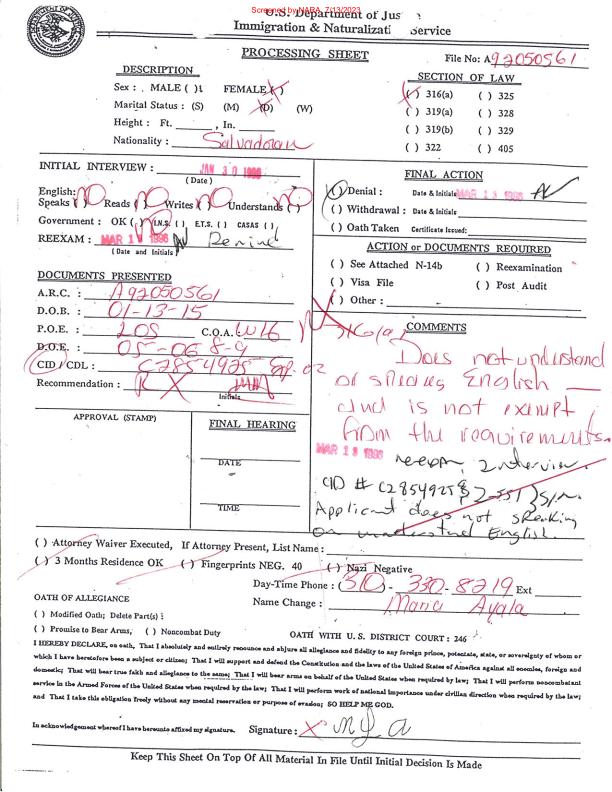 Screened by NARA, 7/13/2023
U.S. Department of Jus
Immigration & Naturalizati Service
PROCESSING SHEET
File No: A92050561
DESCRIPTION
Sex : MALE ( ) FEMALE ( )
Marital Status : (S) (M) (D) (W)
Height : Ft. , In.
Nationality : Salvadoran
SECTION OF LAW
( ) 316(a) ( ) 325
( ) 319(a) ( ) 328
( ) 319(b) ( ) 329
( ) 322 ( ) 405
INITIAL INTERVIEW : JAN 30 1996
(Date)
English: NO NO NO NO
Speaks ( ) Reads ( ) Writes ( ) Understands ( )
Government : OK ( ) I.N.S. ( ) E.T.S. ( ) CASAS ( )
REEXAM : MAR 1 1996
( Date and Initials )
FINAL ACTION
( ) Denial : Date & Initials MAR 13 1996
( ) Withdrawal : Date & Initials
( ) Oath Taken Certificate Issued:
ACTION or DOCUMENTS REQUIRED
( ) See Attached N-14b ( ) Reexamination
( ) Visa File ( ) Post Audit
( ) Other :
DOCUMENTS PRESENTED
A.R.C. : A92050561
D.O.B. : 01-13-15
P.O.E. : LOS C.O.A.: W16
D.O.E. : 05-06 8-9
CID / CDL : C2854925
Recommendation :
Initials
COMMENTS
316(a)
Does not understand
or speaks English
and is not exempt
from the requirements.
MAR 13 1996 reexam, interview.
CID # C2854925
Applicant does not speaking
or understand English.
APPROVAL (STAMP)
FINAL HEARING
DATE
TIME
( ) Attorney Waiver Executed, If Attorney Present, List Name :
( ) 3 Months Residence OK ( ) Fingerprints NEG. 40 ( ) Nazi Negative
Day-Time Phone : (310) - 330-8219 Ext
Name Change : Maria Ayala
OATH OF ALLEGIANCE
( ) Modified Oath; Delete Part(s) :
( ) Promise to Bear Arms, ( ) Noncombat Duty OATH WITH U. S. DISTRICT COURT : 246
I HEREBY DECLARE, on oath, That I absolutely and entirely renounce and abjure all allegiance and fidelity to any foreign prince, potentate, state, or sovereignty of whom or
which I have heretofore been a subject or citizen; That I will support and defend the Constitution and the laws of the United States of America against all enemies, foreign and
domestic; That will bear true faith and allegiance to the same; That I will bear arms on behalf of the United States when required by law; That I will perform noncombatant
service in the Armed Forces of the United States when required by the law; That I will perform work of national importance under civilian direction when required by the law;
and That I take this obligation freely without any mental reservation or purpose of evasion; SO HELP ME GOD.
In acknowledgement whereof I have hereunto affixed my signature. Signature : X M y a
Keep This Sheet On Top Of All Material In File Until Initial Decision Is Made